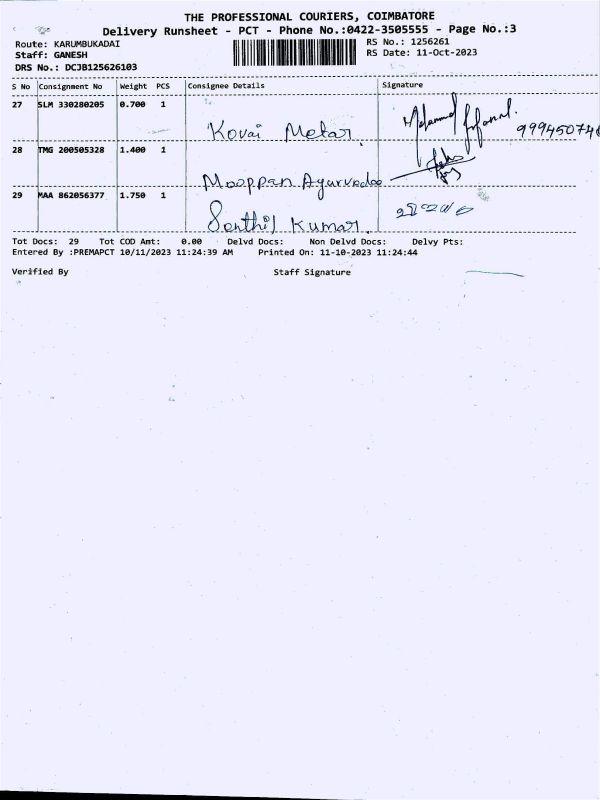 THE PROFESSIONAL COURIERS, COIMBATORE
Delivery Runsheet - PCT - Phone No.:0422-3505555 - Page No.:3
Route: KARUMBUKADAI
RS No.: 1256261
Staff: GANESH
RS Date: 11-Oct-2023
DRS No.: DCJB125626103
S No Consignment No Weight PCS Consignee Details Signature
27 SLM 330280205 0.700 1 Kovai Metar Mohammed
28 TMG 200505328 1.400 1 Mooppan Ayurvedae
29 MAA 862056377 1.750 1 Senthil Kumar
Tot Docs: 29 Tot COD Amt: 0.00 Delvd Docs: Non Delvd Docs: Delvy Pts:
Entered By :PREMAPCT 10/11/2023 11:24:39 AM Printed On: 11-10-2023 11:24:44
Verified By Staff Signature